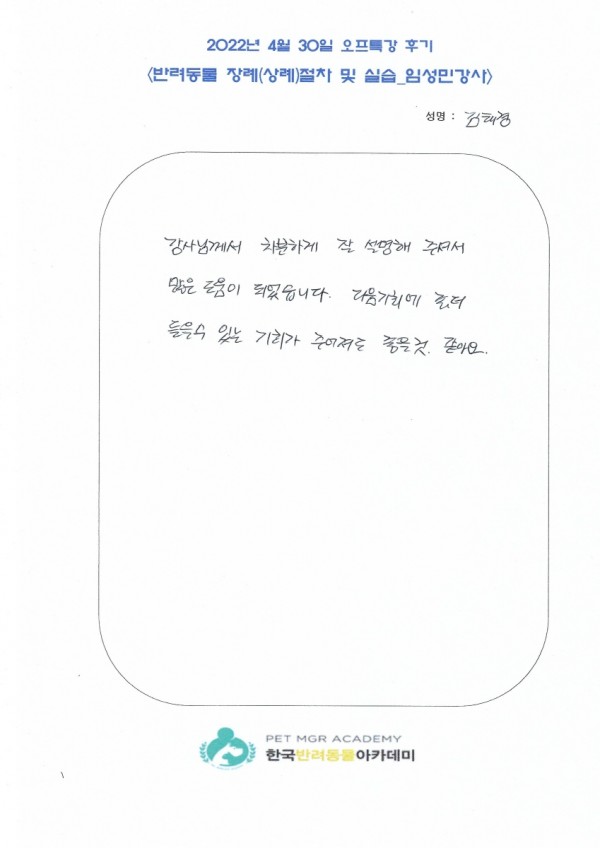 2022년 4월 30일 오프특강 후기
<반려동물 장례(상례)절차 및 실습_임성민강사>
성명 : 김태경
강사님께서 차분하게 잘 설명해 주셔서
많은 도움이 되었습니다. 다음기회에 또더
들을수 있는 기회가 주어져도 좋을것. 같아요.
PET MGR ACADEMY
한국반려동물아카데미